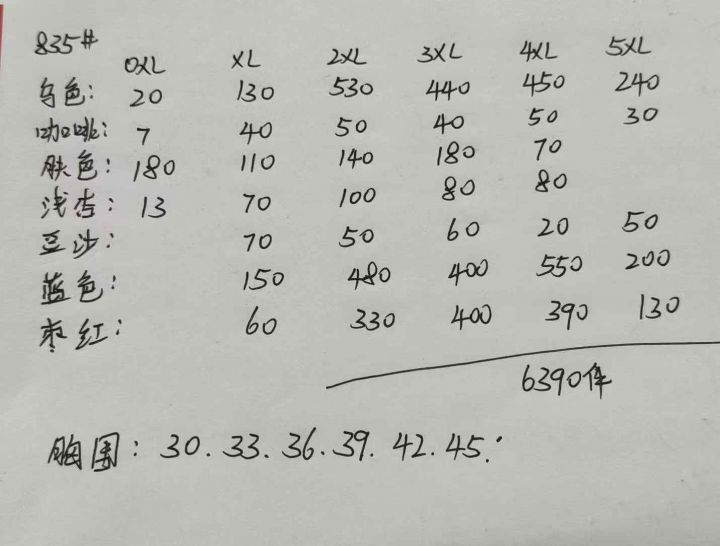 835#
0XL XL 2XL 3XL 4XL 5XL
乌色: 20 130 530 440 450 240
咖啡: 7 40 50 40 50 30
肤色: 180 110 140 180 70
浅杏: 13 70 100 80 80
豆沙: 70 50 60 20 50
蓝色: 150 480 400 550 200
枣红: 60 330 400 390 130
6390件
胸围: 30.33.36.39.42.45.